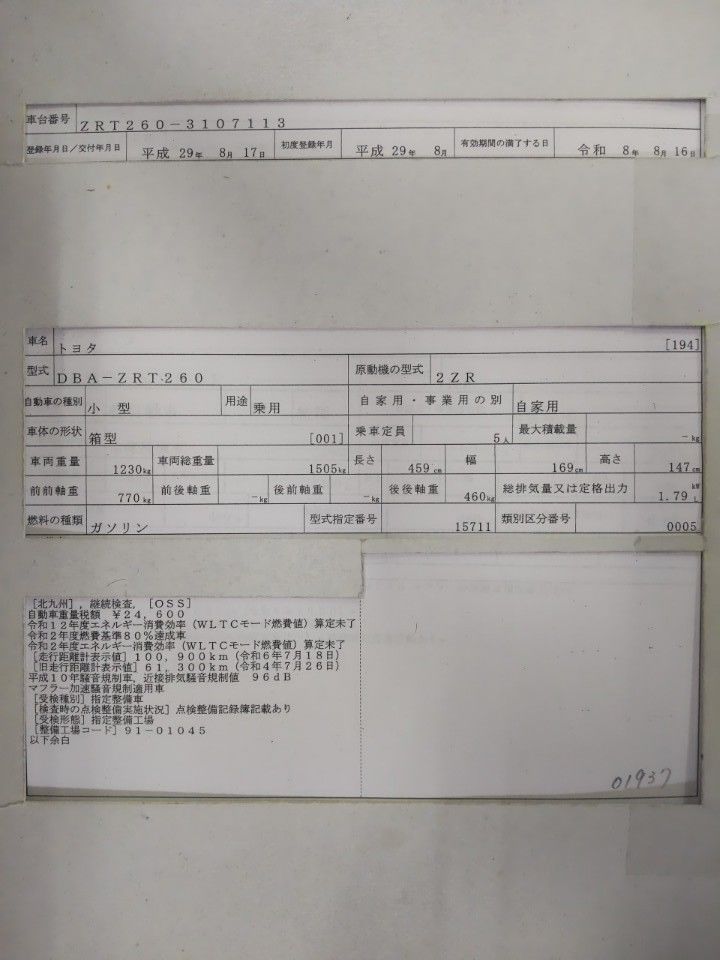 車台番号 ZRT260-3107113
登録年月日/交付年月日 平成 29年 8月 17日 初度登録年月 平成 29年 8月 有効期間の満了する日 令和 8年 8月 16日
車名 トヨタ [194]
型式 DBA-ZRT260 原動機の型式 2ZR
自動車の種別 小型 用途 乗用 自家用・事業用の別 自家用
車体の形状 箱型 [001] 乗車定員 5人 最大積載量 -kg
車両重量 1230kg 車両総重量 1505kg 長さ 459cm 幅 169cm 高さ 147cm
前前軸重 770kg 前後軸重 -kg 後前軸重 -kg 後後軸重 460kg 総排気量又は定格出力 1.79 kW L
燃料の種類 ガソリン 型式指定番号 15711 類別区分番号 0005
[北九州], 継続検査, [OSS]
自動車重量税額 ¥24,600
令和12年度エネルギー消費効率(WLTCモード燃費値)算定未了
令和2年度燃費基準80%達成車
令和2年度エネルギー消費効率(WLTCモード燃費値)算定未了
[走行距離計表示値]100,900km(令和6年7月18日)
[旧走行距離計表示値]61,300km(令和4年7月26日)
平成10年騒音規制車,近接排気騒音規制値 96dB
マフラー加速騒音規制適用車
[受検種別]指定整備車
[検査時の点検整備実施状況]点検整備記録簿記載あり
[受検形態]指定整備工場
[整備工場コード]91-01045
以下余白
01937